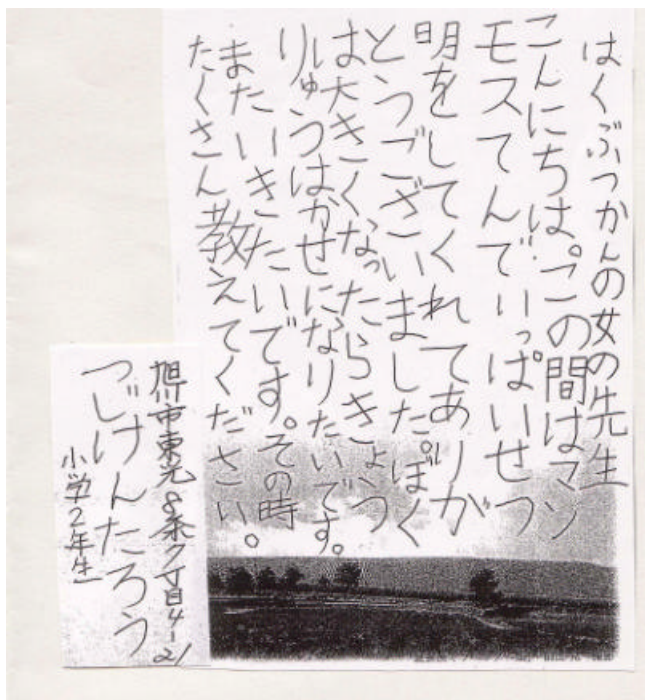 はくぶつかんの女の先生
こんにちは。この間はマン
モスてんでいっぱいせつ
明をしてくれてありが
とうございました。ぼく
は大きくなったらきょう
りゅうはかせになりたいです。
またいきたいです。その時
たくさん教えてください。
旭川市東光8条7丁目4-21
つじけんたろう
小学2年生